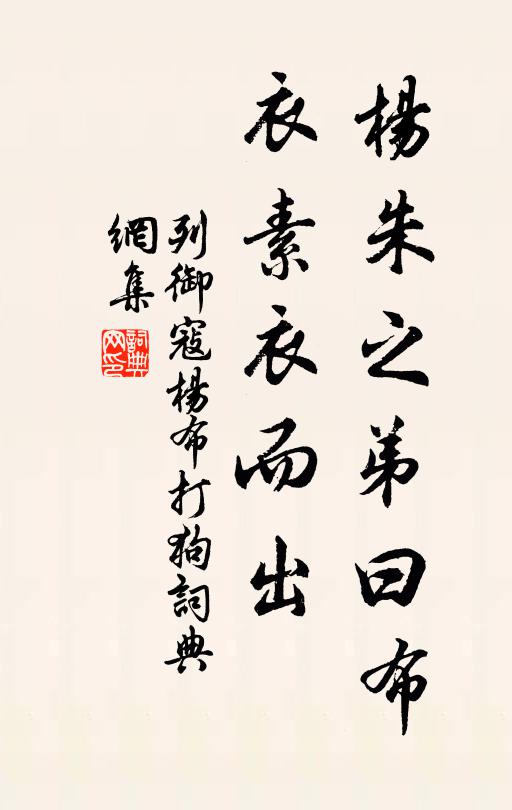 楊朱之弟曰布
衣素衣而出
列御寇楊布打狗詞典
網集
詞典
网印